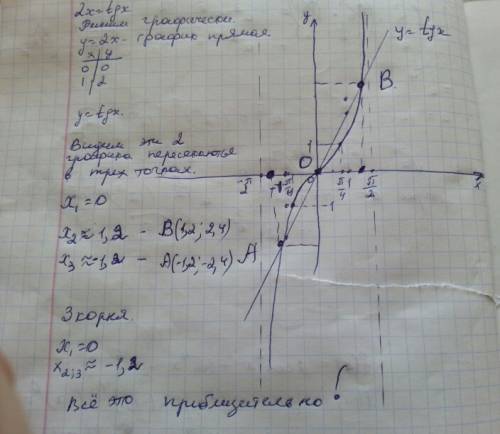 2x=tgx
Решим графически
y=2x- график прямая
x | y
0 | 0
1 | 2
y=tgx.
Видим эти 2
графика пересекаються
в трех точках.
x₁=0
x₂≈1,2 - B(1,2; 2,4)
x₃≈-1,2 - A(-1,2; -2,4)
3 корня.
x₁=0
x₂,₃≈-1,2
Всё это приблизительно!
y
y=tgx
B
1
O
0
-π/2
-1
-π/4
1
π/4
π/2
x
-1
A